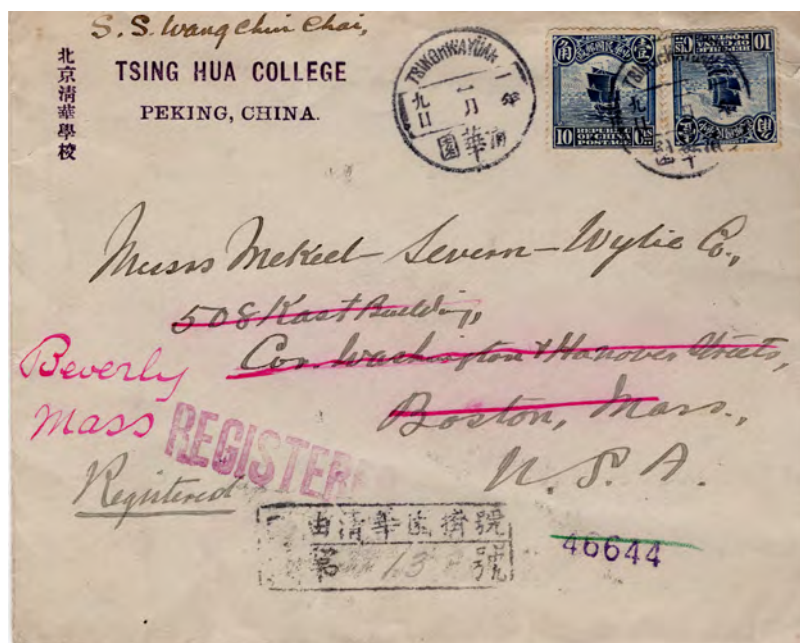 S. S. Wang Chin Chai,
北京清華學校
TSING HUA COLLEGE
PEKING, CHINA.
TSINGHWAYÜAN
年
一月
九日
清華園
角 壹
10 REPUBLIC OF CHINA POSTAGE Cts
10 REPUBLIC OF CHINA POSTAGE Cts
Messrs Mekeel-Severn-Wylie Co.,
508 Kast Building,
Cor. Washington & Hanover Streets,
Boston, Mass.,
U. S. A.
Beverly
Mass
REGISTERED
Registered
由清華 號
13 號
46644